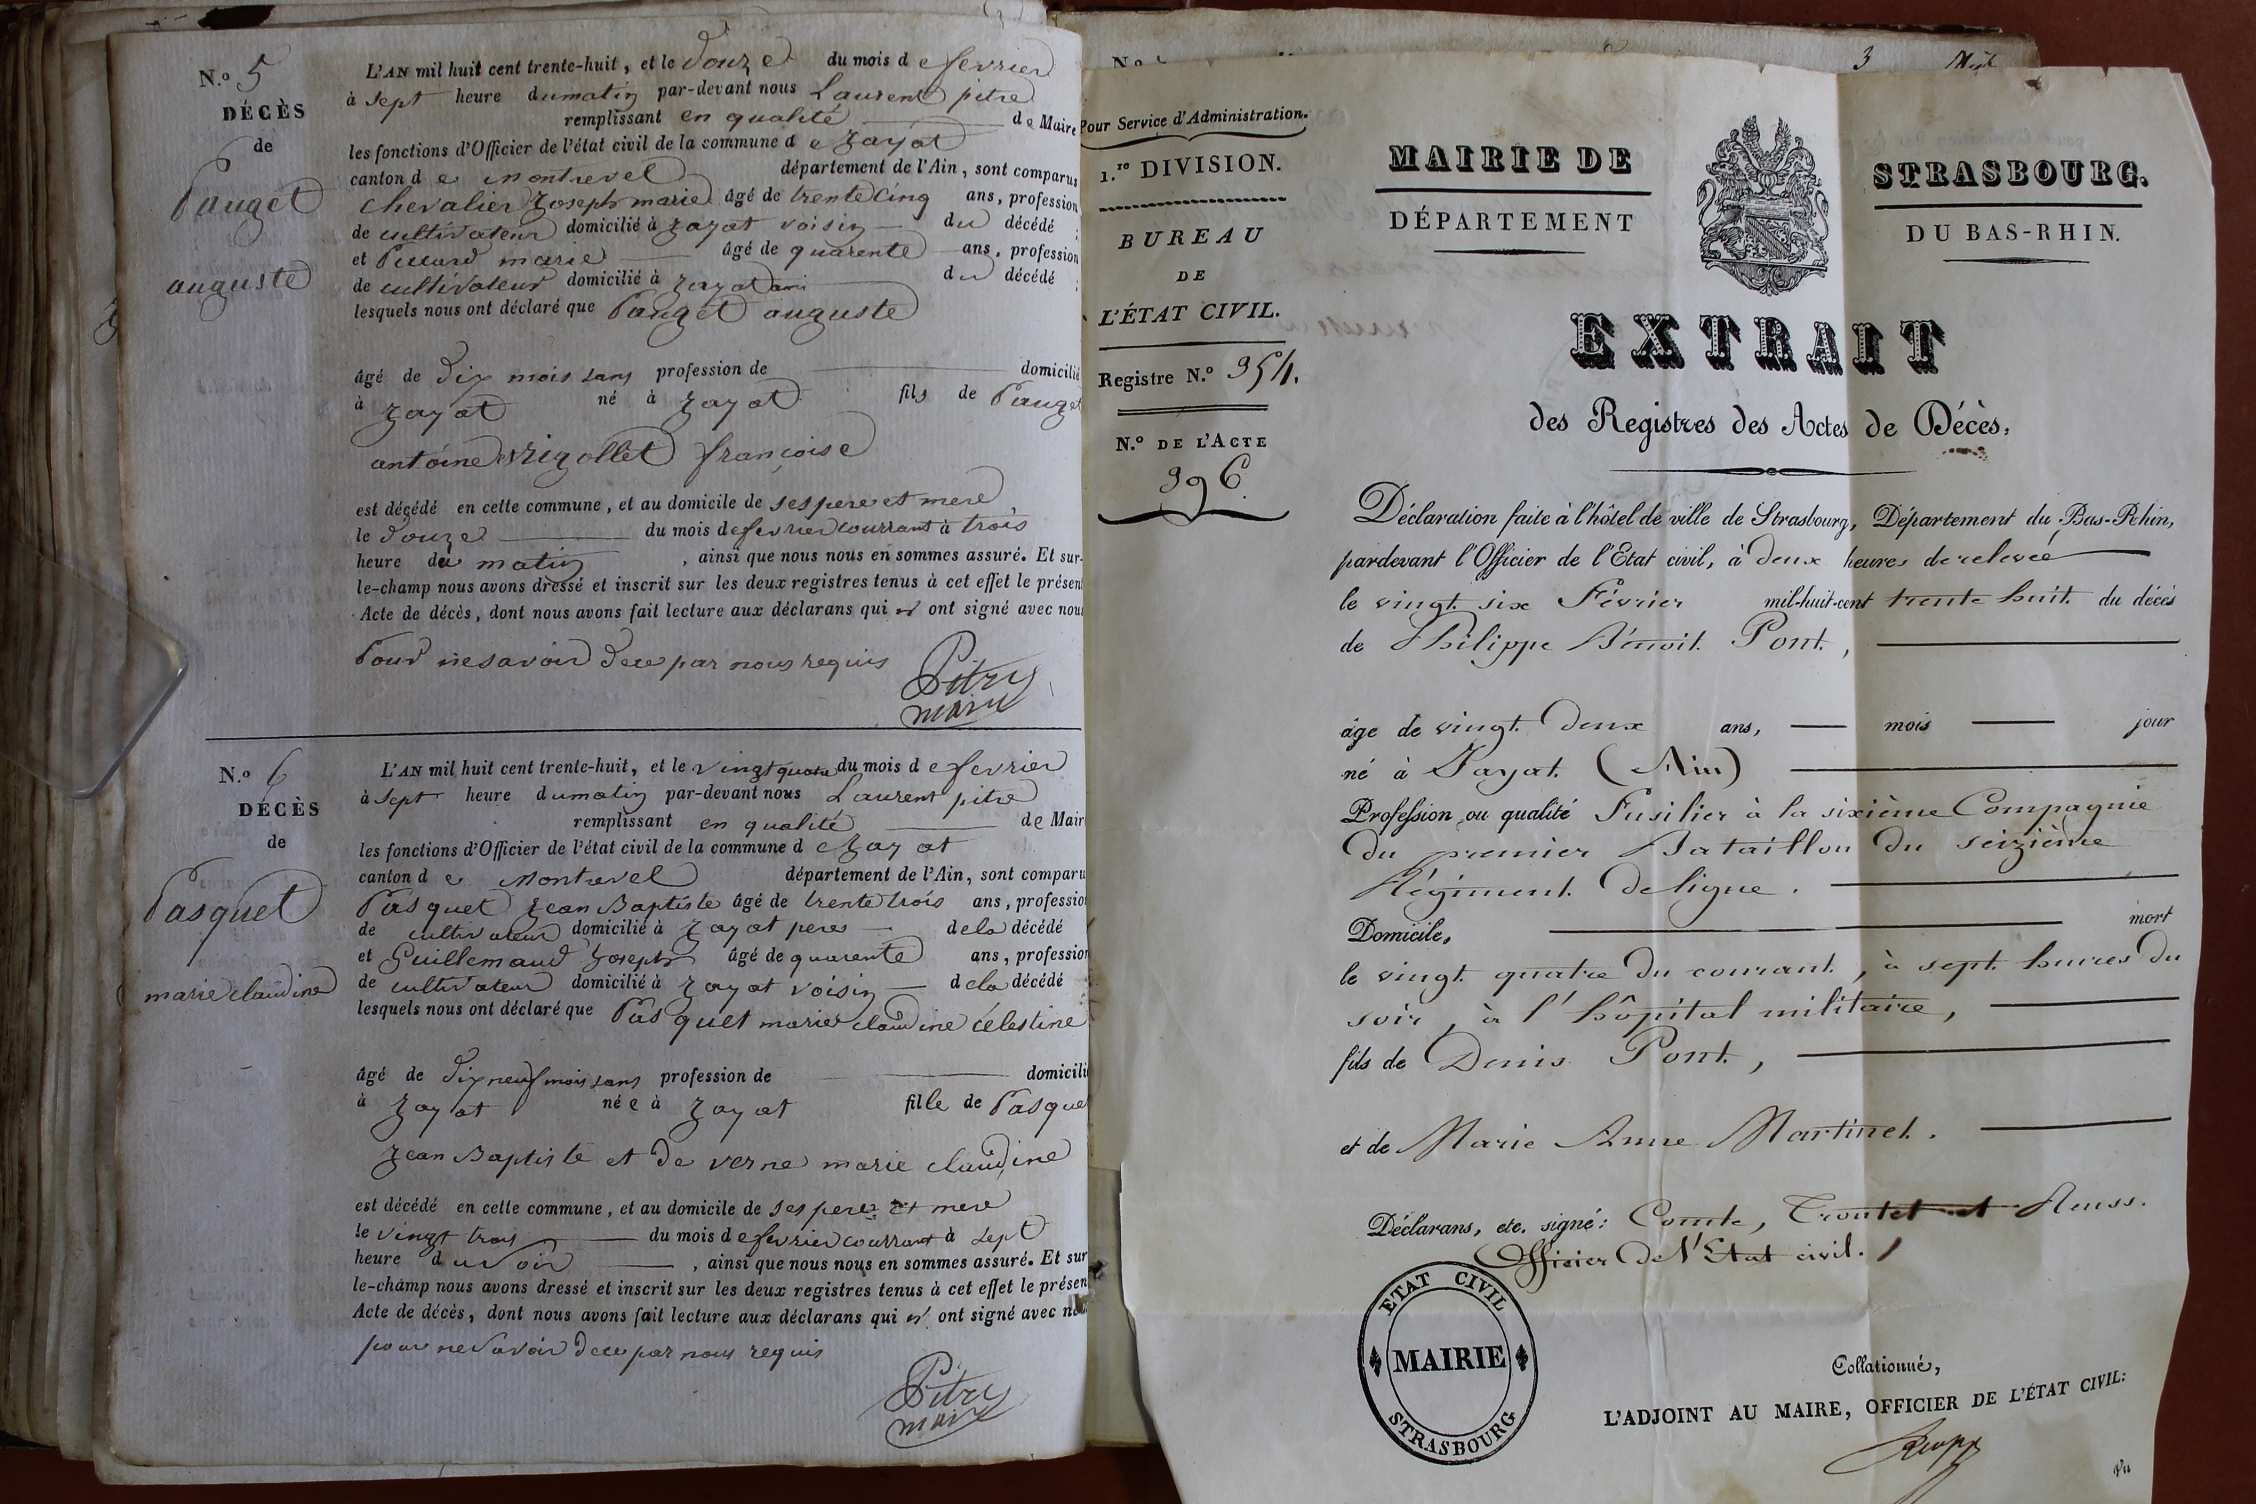 N.o 5
DÉCÈS
de
Pauget
auguste
L'AN mil huit cent trente-huit, et le douze du mois de fevrier
à sept heure dumatin par-devant nous Laurent pitre
remplissant en qualité de Maire
les fonctions d'Officier de l'état civil de la commune de Jayat
canton de montrevel département de l'Ain, sont comparus
chevalier Joseph marie âgé de trente cinq ans, profession
de cultivateur domicilié à jayat voisin du décédé ;
et marie âgé de quarente ans, profession
de cultivateur domicilié à jayat ami du décédé ;
lesquels nous ont déclaré que Pauget auguste
âgé de dix mois sans profession de domicilié
à jayat né à jayat fils de Pauget
antoine rigollet françoise
est décédé en cette commune, et au domicile de ses pere et mere
le douze du mois de fevrier courrant à trois
heure du matin, ainsi que nous nous en sommes assuré. Et sur-
le-champ nous avons dressé et inscrit sur les deux registres tenus à cet effet le présen
Acte de décès, dont nous avons fait lecture aux déclarans qui n' ont signé avec nou
Pour ne savoir dece par nous requis
Pitre
maire
N.o 6
DÉCÈS
de
Pasquet
marie claudine
L'AN mil huit cent trente-huit, et le vingt quatre du mois de fevrier
à sept heure dumatin par-devant nous Laurent pitre
remplissant en qualité de Mair
les fonctions d'Officier de l'état civil de la commune de Jayat
canton de Montrevel département de l'Ain, sont comparu
Pasquet jean Baptiste âgé de trente trois ans, professio
de cultivateur domicilié à jayat pere de la décédé
et Guillemaud Joseph âgé de quarente ans, profession
de cultivateur domicilié à jayat voisin de la décédé
lesquels nous ont déclaré que Pasquet marie claudine célestine
âgé de dix neuf mois sans profession de domicili
à jayat née à jayat fille de Pasque
jean Baptiste et de verne marie claudine
est décédé en cette commune, et au domicile de ses pere et mere
le vingt trois du mois de fevrier courrant à sept
heure du soir, ainsi que nous nous en sommes assuré. Et sur
le-champ nous avons dressé et inscrit sur les deux registres tenus à cet effet le présen
Acte de décès, dont nous avons fait lecture aux déclarans qui n' ont signé avec nou
pour ne savoir dece par nous requis
Pitre
maire
N.o
3
Pour Service d'Administration.
1.re DIVISION.
BUREAU
DE
L'ÉTAT CIVIL.
Registre N.o 954.
N.o DE L'ACTE
396
MAIRIE DE STRASBOURG.
DÉPARTEMENT DU BAS-RHIN.
EXTRAIT
des Registres des Actes de Décès,
Déclaration faite à l'hôtel de ville de Strasbourg, Département du Bas-Rhin,
pardevant l'Officier de l'Etat civil, à deux heures de relevée
le vingt six Février mil-huit-cent trente huit du décès
de Philippe Bénoit Pont,
âge de vingt deux ans, mois jour
né à Jayat (Ain)
Profession ou qualité Fusilier à la sixième Compagnie
du premier Bataillon du seizième
Régiment de ligne.
Domicile, mort
le vingt quatre du courant, à sept heures du
soir, à l'hôpital militaire,
fils de Denis Pont,
et de Marie Anne Martinet.
Déclarans, etc. signé: Comte, Troutet et Reuss.
Officier de l'Etat civil.
ETAT CIVIL
MAIRIE
STRASBOURG
Collationné,
L'ADJOINT AU MAIRE, OFFICIER DE L'ÉTAT CIVIL:
Vu